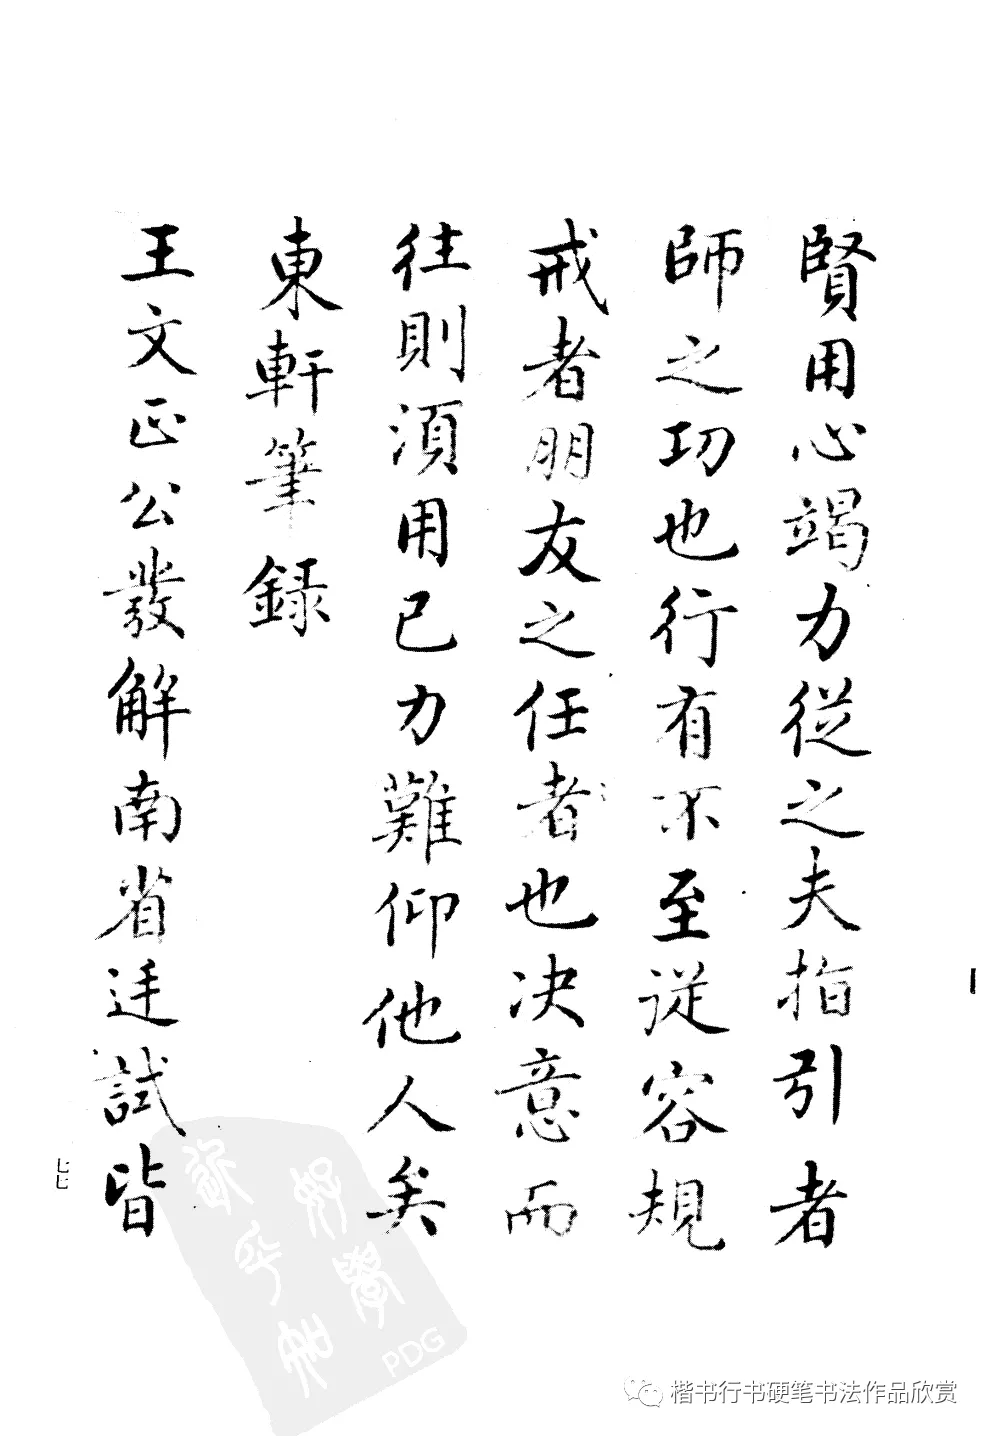 賢用心竭力從之夫指引者
師之功也行有不至從容規
戒者朋友之任者也决意而
往則須用己力難仰他人矣
東軒筆錄
王文正公發解南省廷試皆
七七
PDG
楷书行书硬笔书法作品欣赏